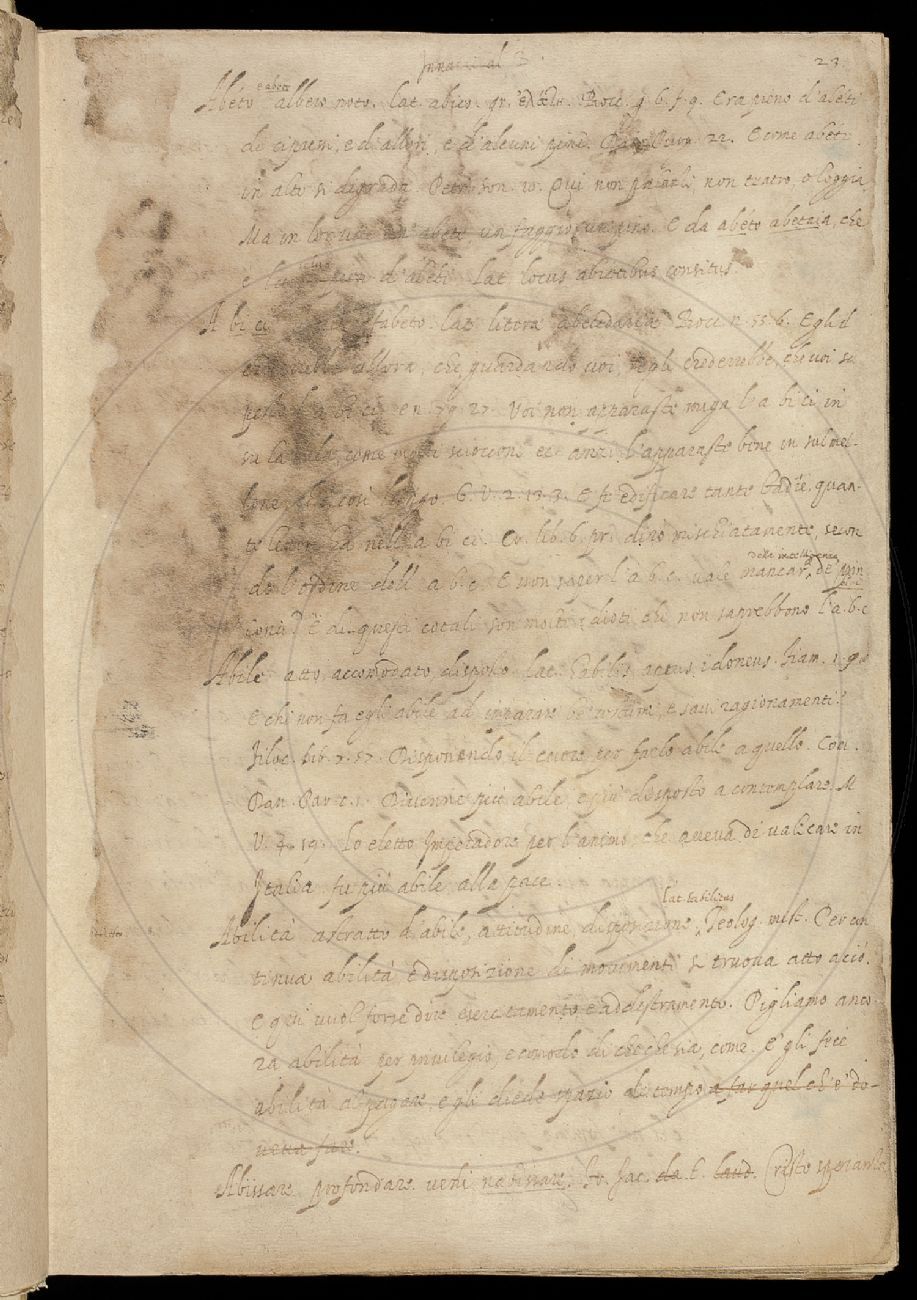 23
e abete
Abéto albero noto. lat. abies. gr. Bocc. g. 6. f. 9. Era pieno d'abéti
di cipressi, e d'allori, e d'alcuni pini. Dan. Pur. 22. E come abéto
in alto si digrada. Petr. son. 10. Qui non palazzi, non teatro, o loggia
Ma in lor vece un' abete un faggio, un pino. E da abéto abetaia, che
è d'abéti. lat. locus abietibus consitus.
A bi ci lat. litera abecedaria Bocc. n. 55. 6. Egli
allora, che guardando voi, egli crederrebbe, che voi sa
peste l'a bi ci. e n. 79. 27. Voi non apparaste miga l'a bi ci in
su la mela, come molti sciocconi anzi l'apparaste bene in sul mel-
lone, che è così lungo. G. V. 2. 13. 3. E fe edificare tante Badie, quan-
te lettere ha nell' a bi ci. lib. 6. pr. dirò mischiatamente, secon
della intelligenza
do l'ordine dell' a. b. c. E non saper l'a. b. c. vale mancar de' prin
cipii
E di questi cotali son molti idioti, che non saprebbono l'a. b. c
Abile atto, accomodato, disposto. lat. habilis, aptus, idoneus. fiam.
E chi non fa egli abile ad imparare e savi ragionamenti?
filoc. lib. 7. 57. Disponendo il cuore per farlo abile a quello. Com.
Dan. Par. c. 1. Divenne più abile, e più disposto a contemplare. M
V. 4. 19. lo eletto Imperadore per l'animo, che aveva di valicare in
Italia fu più abile alla pace.
Lat. habilitas
Abilità astratto d'abile, attitudine disposizione, Teolog. mist. Per con
tinua abilità e disposizione di movimenti si truova atto a ciò.
E qui vuol forse dire esercitamento e addestramento. Pigliamo anco
ra abilità per privilegio, e comodo di che che sia, come. E' gli fece
abilità al pagare e gli diede spazio di tempo a far quel ch' e' do-
veva fare.
Abissare profondare. vedi nabissare. fr. Jac. da t. laud. Cristo speranza